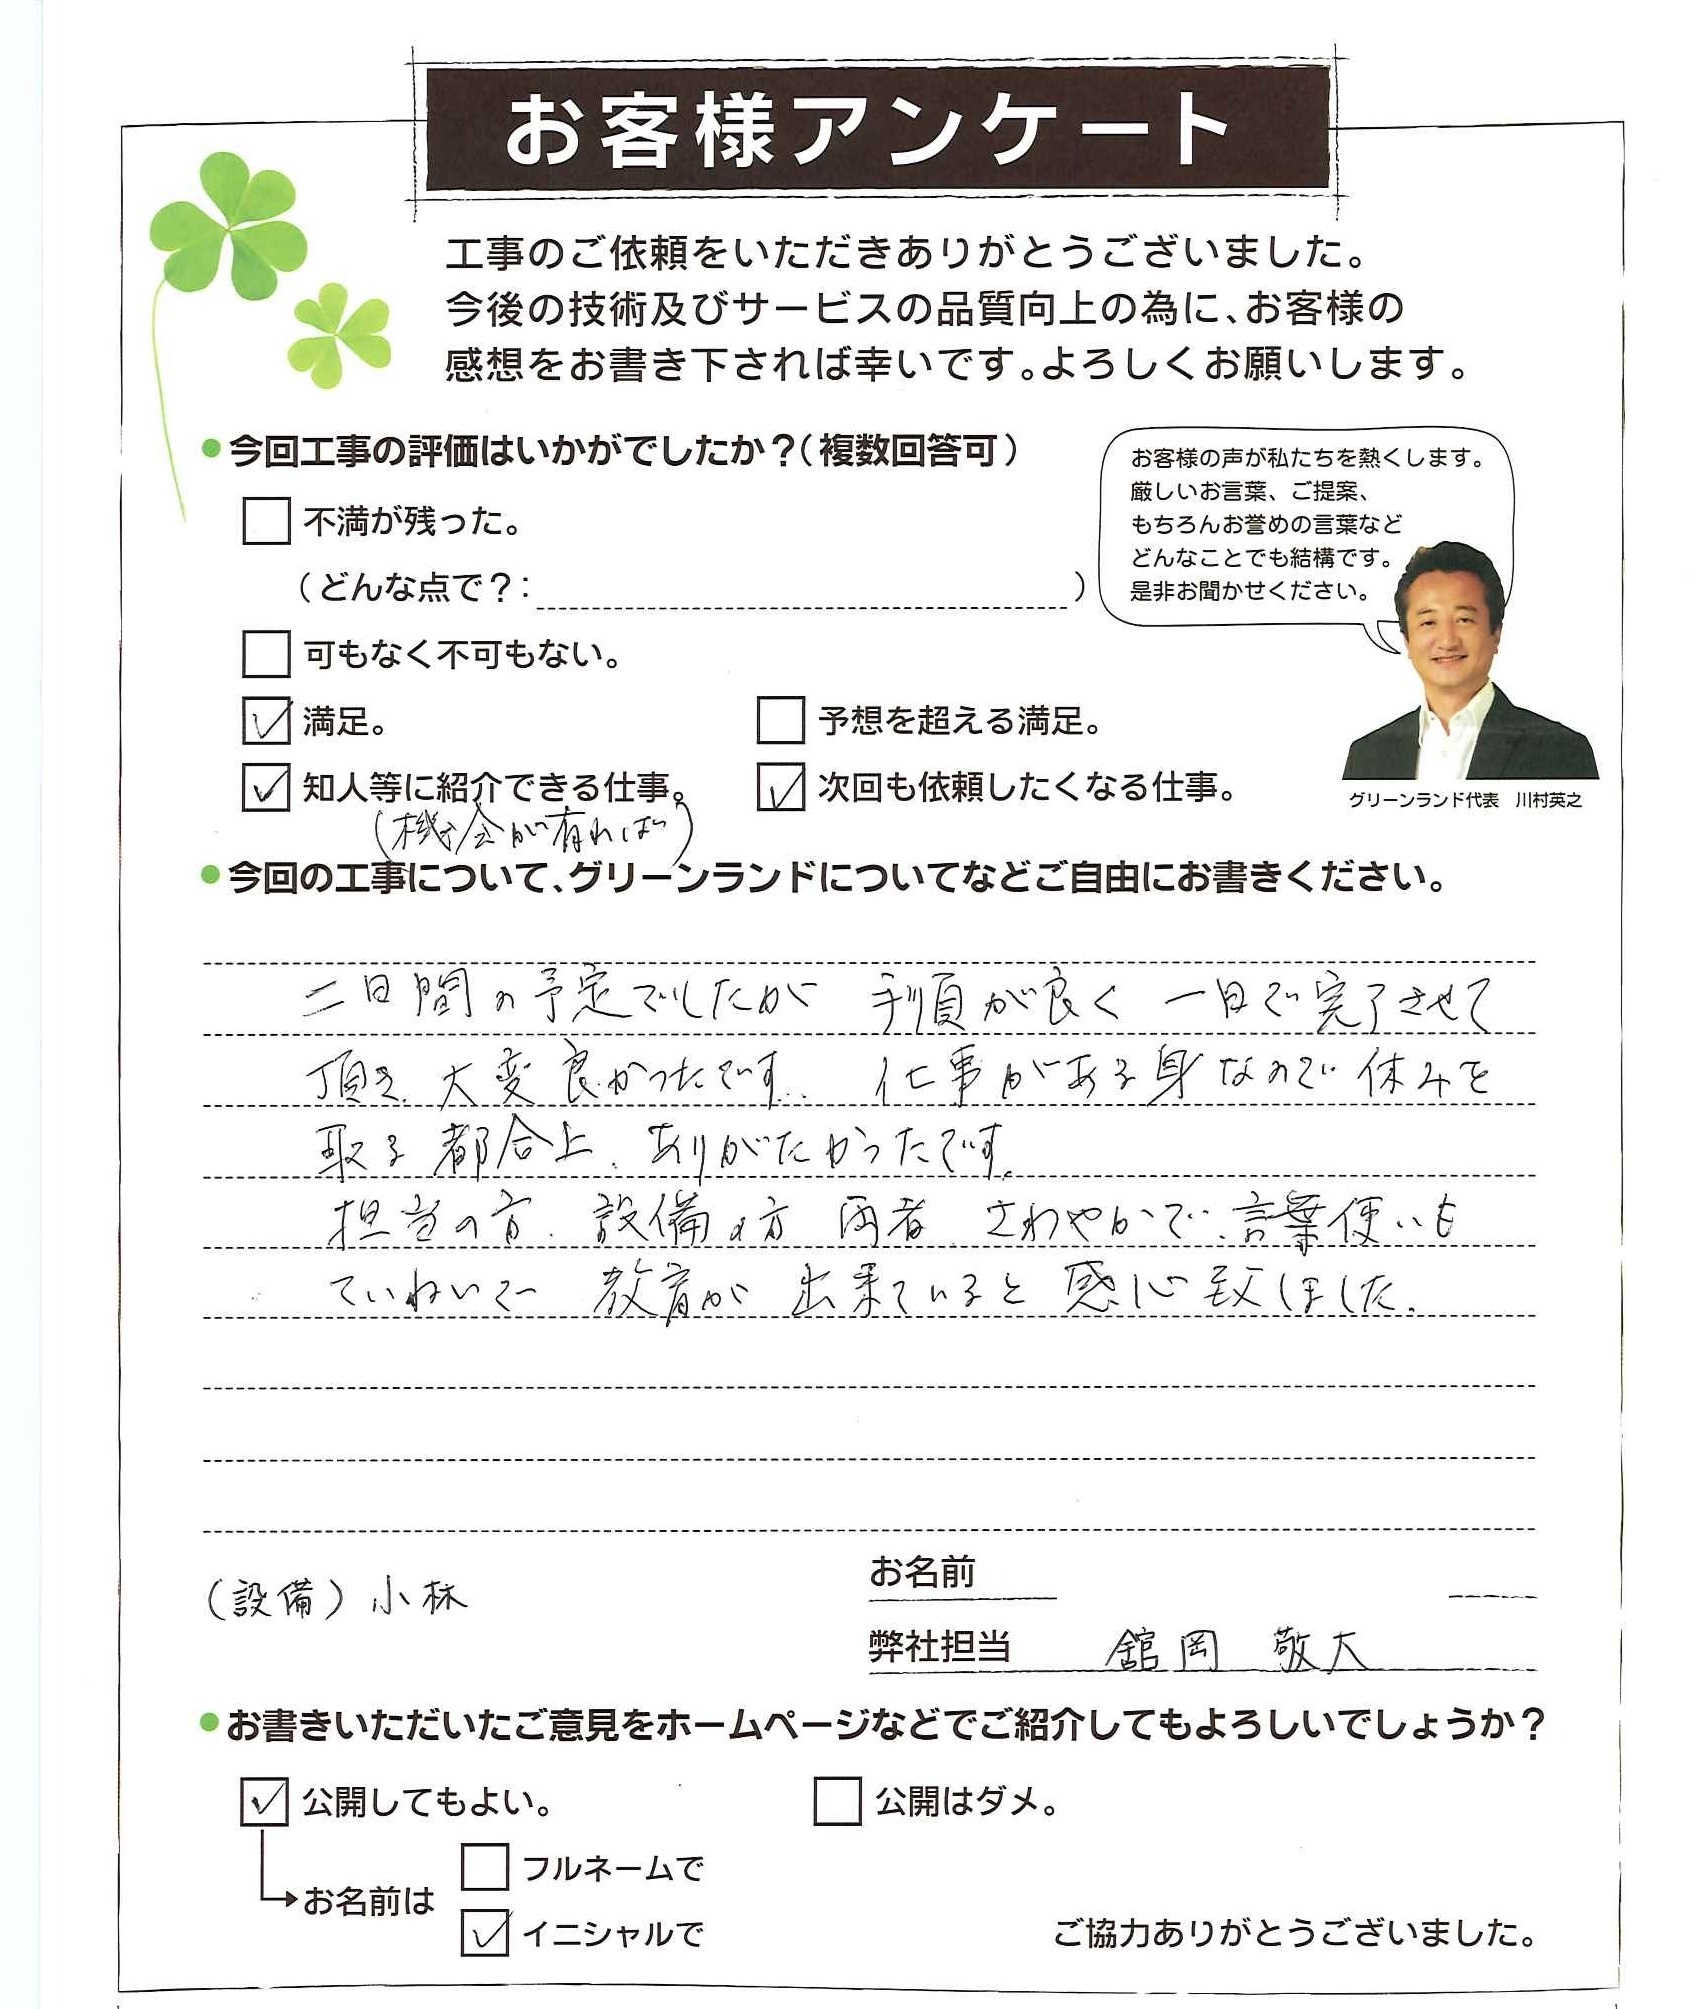 お客様アンケート
工事のご依頼をいただきありがとうございました。
今後の技術及びサービスの品質向上の為に、お客様の
感想をお書き下されば幸いです。よろしくお願いします。
●今回工事の評価はいかがでしたか？（複数回答可）
不満が残った。
（どんな点で？：　）
可もなく不可もない。
満足。
予想を超える満足。
知人等に紹介できる仕事。
次回も依頼したくなる仕事。
（機会が有れば）
お客様の声が私たちを熱くします。
厳しいお言葉、ご提案、
もちろんお誉めの言葉など
どんなことでも結構です。
是非お聞かせください。
グリーンランド代表　川村英之
●今回の工事について、グリーンランドについてなどご自由にお書きください。
二日間の予定でしたが 手順が良く 一日で完了させて
頂き、大変良かったです。 仕事がある身なので休みを
取る都合上、ありがたかったです。
担当の方、設備の方 両者、さわやかで、言葉使いも
ていねいで 教育が 出来ていると 感心致しました。
（設備）小林
お名前
弊社担当　舘岡 敬大
●お書きいただいたご意見をホームページなどでご紹介してもよろしいでしょうか？
公開してもよい。
公開はダメ。
お名前は
フルネームで
イニシャルで
ご協力ありがとうございました。